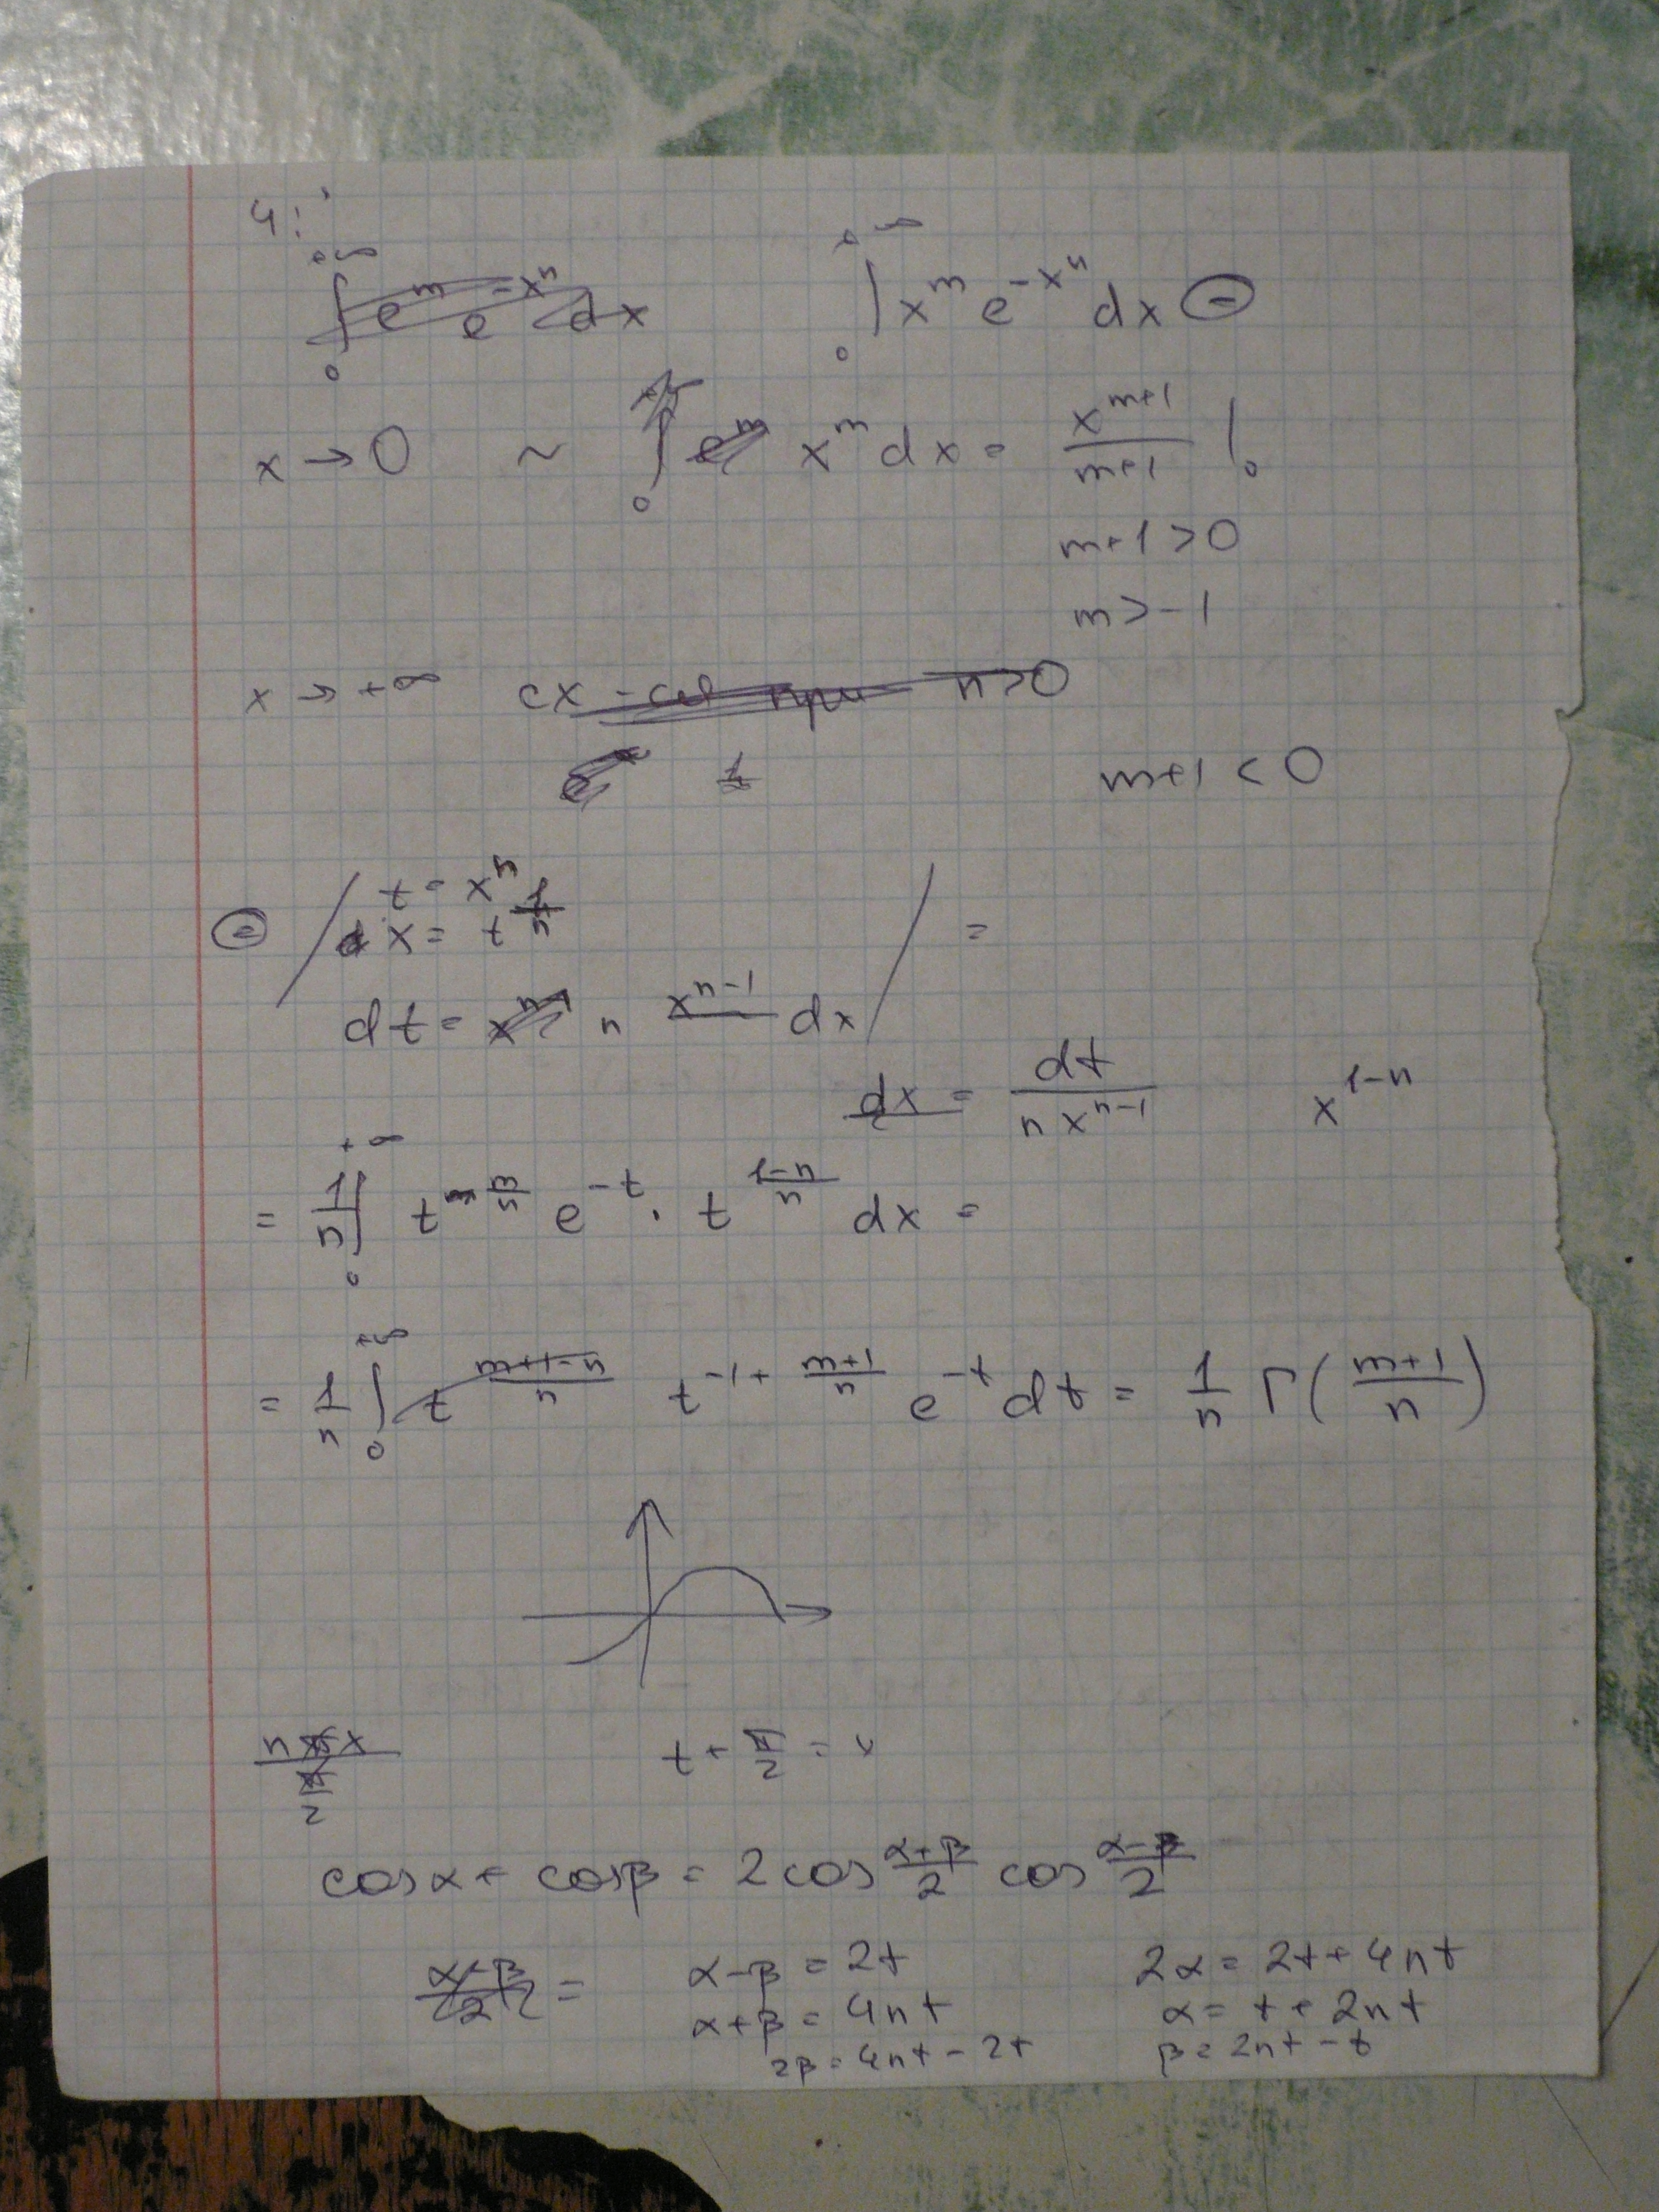 4:
+∞ ∫ 0 e^m e^{-x^n} dx   +∞ ∫ 0 x^m e^{-x^n} dx ⊜
x → 0 ~ ∫ 0 x^m dx = x^{m+1}/(m+1) |_0
m+1 > 0
m > -1
x → +∞ сх-ся при n>0
m+1 < 0
⊜ / t = x^n
x = t^{1/n}
dt = n x^{n-1} dx / =
dx = dt/(n x^{n-1})   x^{1-n}
= 1/n ∫_0^{+∞} t^{m/n} e^{-t} · t^{(1-n)/n} dx =
= 1/n ∫_0^{+∞} t^{(m+1-n)/n} t^{-1+(m+1)/n} e^{-t} dt = 1/n Γ((m+1)/n)
t + π/2 = x
cosα + cosβ = 2cos (α+β)/2 cos (α-β)/2
(α-β)/2 =   α-β = 2t   2α = 2t + 4nt
α+β = 4nt   α = t + 2nt
2β = 4nt - 2t   β = 2nt - t